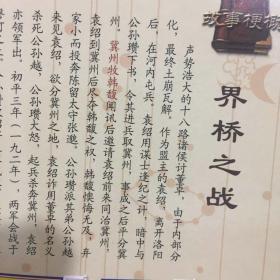 故事梗
界桥之战
声势浩大的十八路诸侯讨董卓,由于内部分
化,最终土崩瓦解。作为盟主的袁绍,离开洛阳
后,在河内屯兵,袁绍用谋士逢纪之计,暗中与
公孙瓒下书,令其进兵取冀州,事成之后平分冀
州。冀州牧韩馥闻讯后邀请袁绍前来同治冀州,
袁绍到冀州后尽夺韩馥之权,韩馥懊悔无及,弃
家小而投奔陈留太守张邈。公孙瓒派其弟公孙越
来见袁绍,欲分冀州之地,袁绍诈用董卓的名义
杀死公孙越,公孙瓒大怒,起兵杀奔冀州,袁绍
亦领军出。初平三年(一九二年),两军会战于